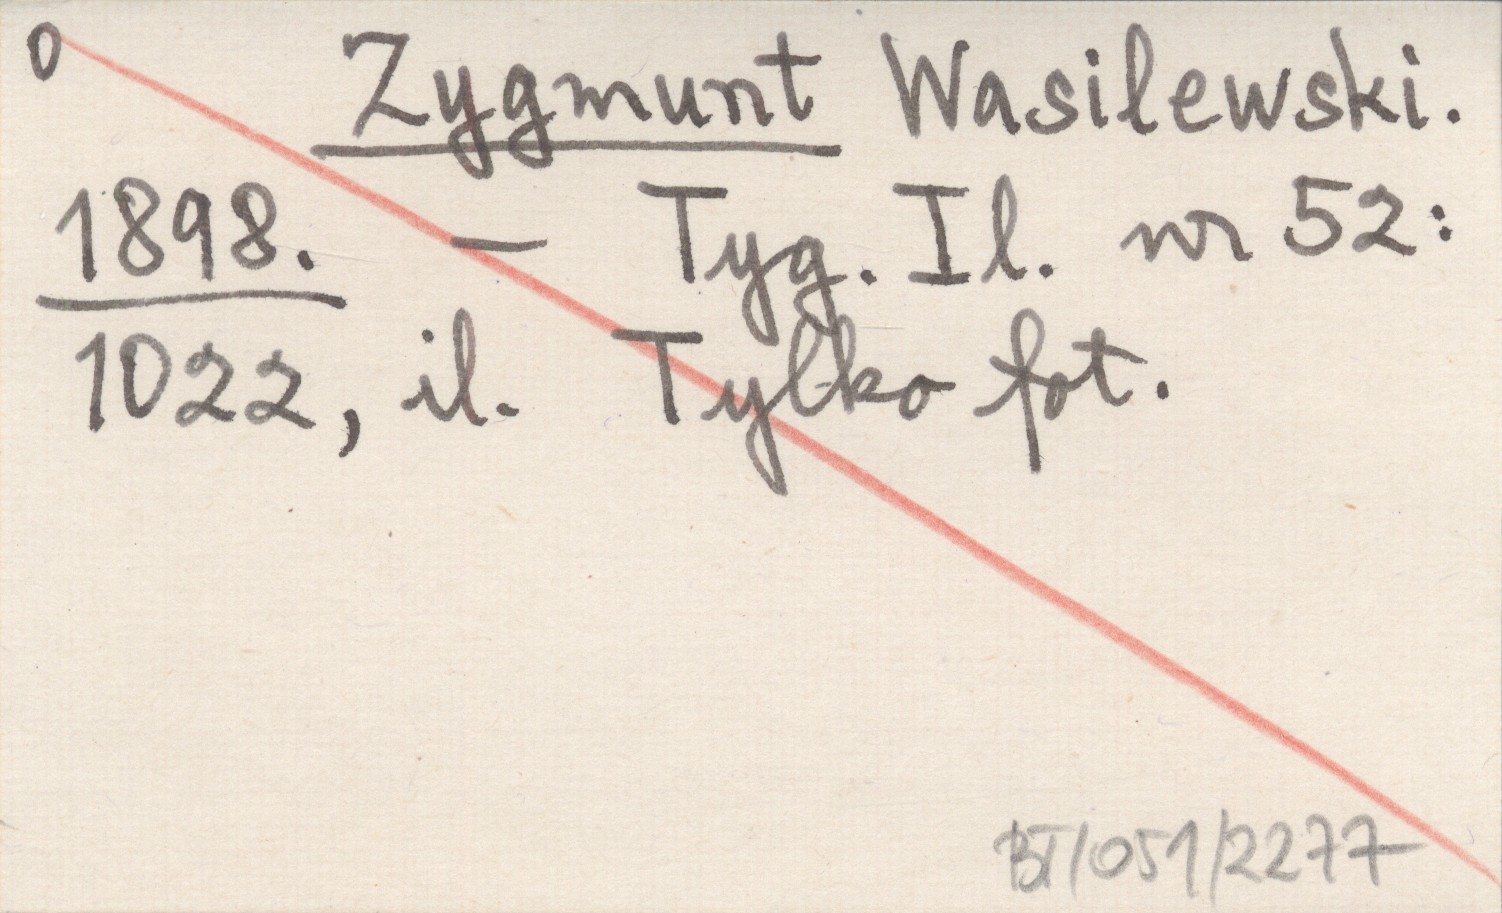 0 Zygmunt Wasilewski.
1898. — Tyg. Il. nr 52:
1022, il. Tylko fot.
BT/051/2277